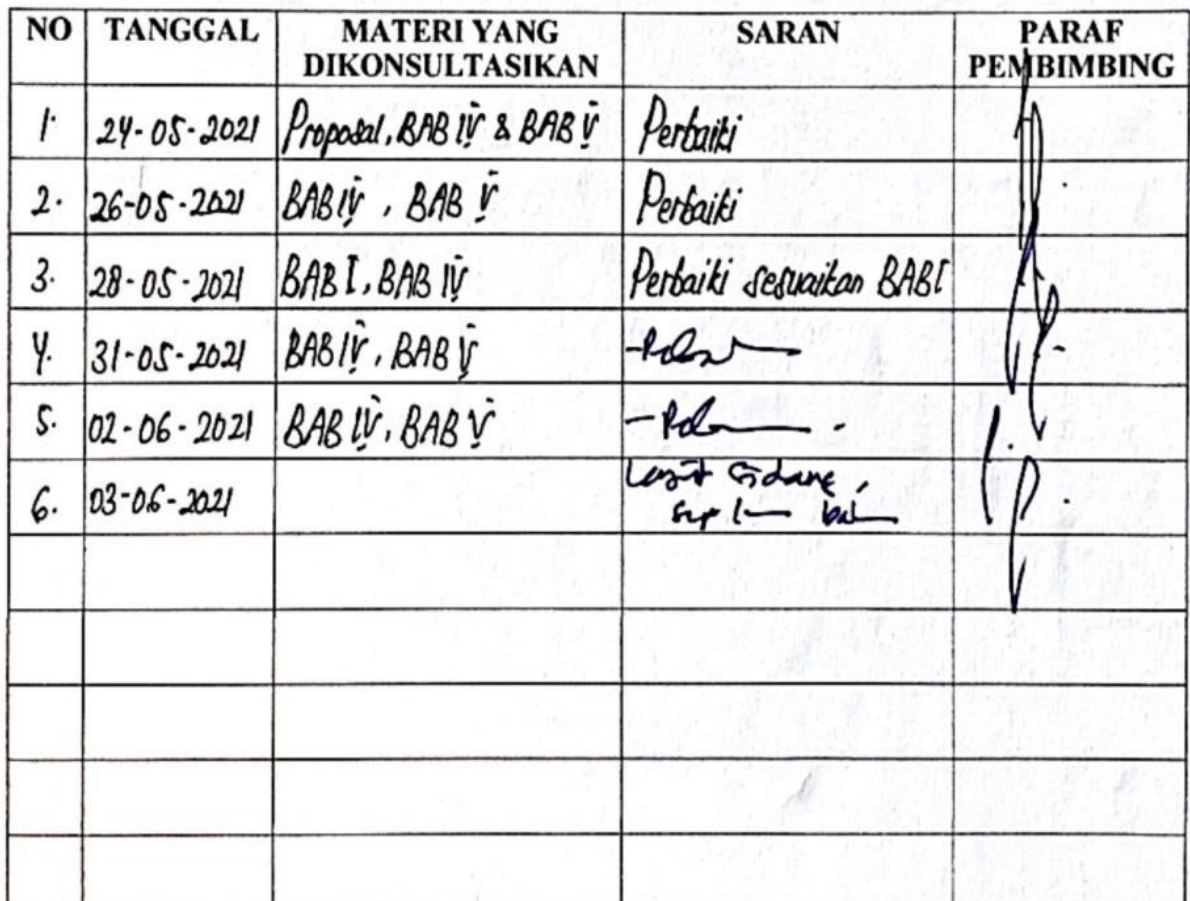 NO TANGGAL MATERI YANG DIKONSULTASIKAN SARAN PARAF PEMBIMBING
1. 24-05-2021 Proposal, BAB IV & BAB V Perbaiki
2. 26-05-2021 BAB IV, BAB V Perbaiki
3. 28-05-2021 BAB I, BAB IV Perbaiki sesuaikan BAB I
4. 31-05-2021 BAB IV, BAB V
5. 02-06-2021 BAB IV, BAB V
6. 03-06-2021